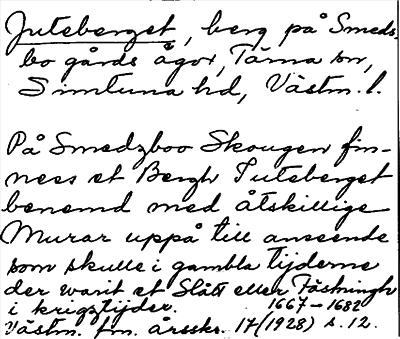 Juteberget, berg på Smeds-
bo gårds ägor, Tärna sn,
Simtuna hd, Västm. l.
På Smedzboo Skougen fin-
ness et Bergh Juteberget
benemd med åtskillige
Murar uppå till anseende
som skulle i gambla tijderne
der warit et Slått eller Fästningh
i krigztijder. 1667-1682
Västm. fm. årsskr. 17 (1928) s. 12.